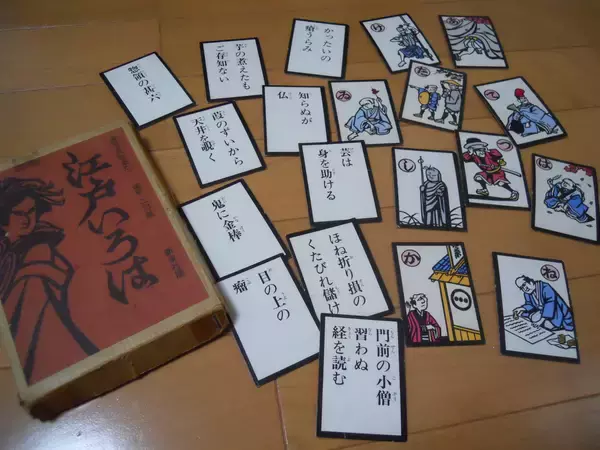 江戸いろは
惣領の甚六
芋の煮えたも
ご存知ない
かったいの
瘡うらみ
葭のずいから
天井を覗く
知らぬが
仏
芸は
身を助ける
鬼に金棒
目の上の
瘤
ほね折り損の
くたびれ儲け
門前の小僧
習わぬ
経を読む
け
た
て
し
つ
は
か
ね